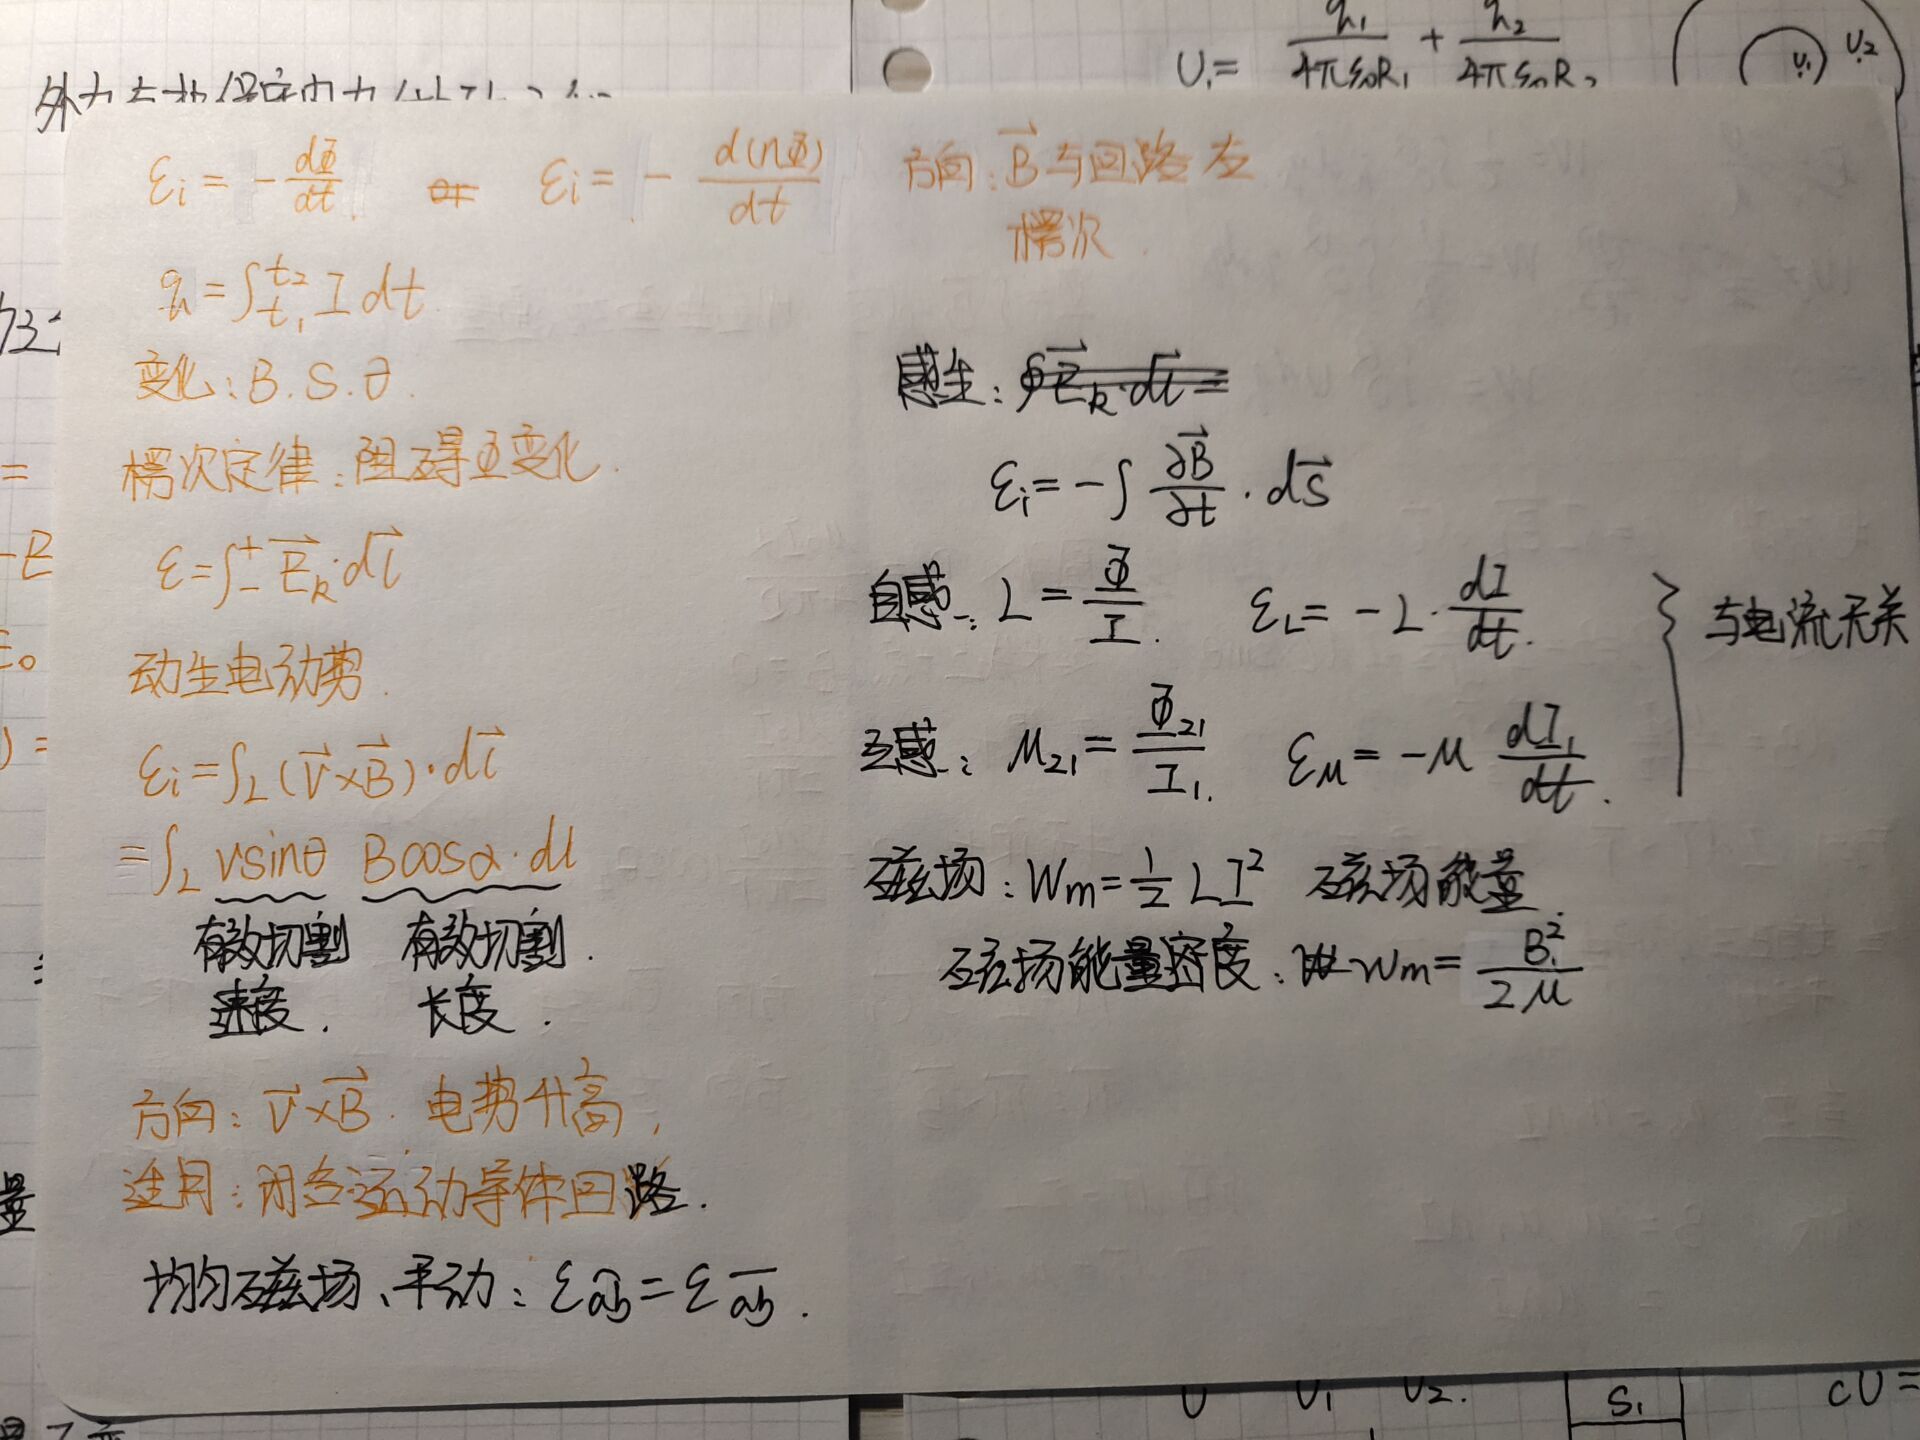 U₁= q₁/4πε₀R₁ + q₂/4πε₀R₂
U₁ U₂
εᵢ = - dΦ/dt or εᵢ = - d(nΦ)/dt
q = ∫t₁t₂ I dt
变化: B. S. θ.
楞次定律: 阻碍Φ变化.
ε=∫₋⁺ E⃗k·dl⃗
动生电动势.
εᵢ=∫L (v⃗×B⃗)·dl⃗
=∫L vsinθ Bcosα·dl
有效切割 有效切割.
速度. 长度.
方向: v⃗×B⃗. 电势升高,
适用: 闭合运动导体回路.
均匀磁场、平动: εa͡b = εa̅b̅.
方向: B⃗与回路左
楞次.
感生: ∮E⃗k·dl⃗=
εᵢ=-∫ ∂B⃗/∂t · dS⃗
自感: L = Φ/I. εL= -L· dI/dt.
与电流无关
互感: M₂₁= Φ₂₁/I₁. εM= -M dI₁/dt.
磁场: Wm=½ LI² 磁场能量.
磁场能量密度: wm= B²/2μ
U U₁ U₂.
S₁
CU=